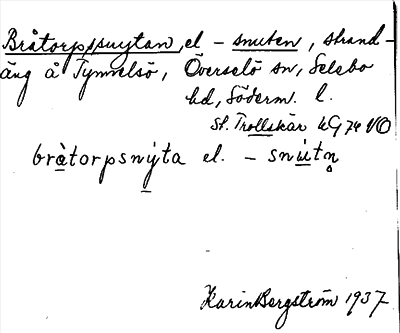 Bråtorpssnytan, el – snuten, strand-
äng å Tynnelsö, Överselö sn, Selebo
hd, Söderm. l.
St. Trollskär 4G74 VO
bråtorpsnýta el. – snùtn̥
Karin Bergström 1937